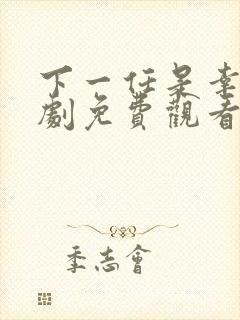 下一任是幸
劇免費觀看
季志會